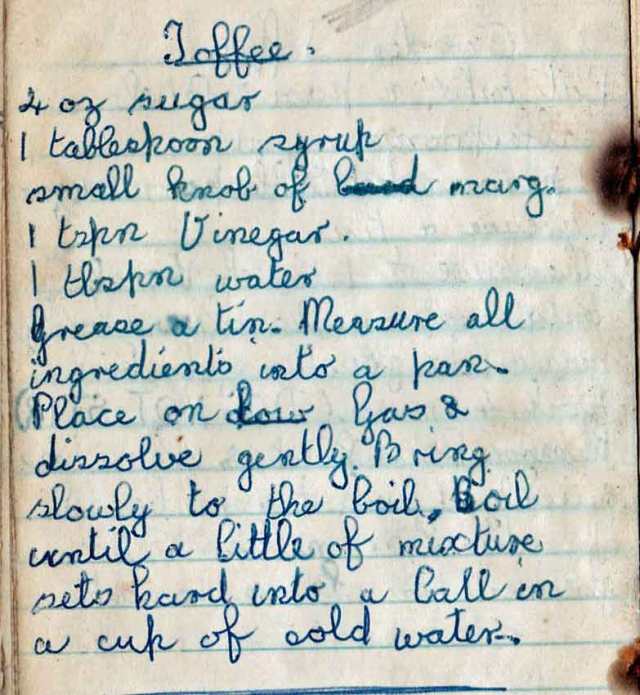 Toffee.
4 oz sugar
1 tablespoon syrup
small knob of marg.
1 tspn Vinegar.
1 tbspn water
Grease a tin. Measure all
ingredients into a pan.
Place on low Gas &
dissolve gently. Bring
slowly to the boil, Boil
until a little of mixture
sets hard into a ball in
a cup of cold water.